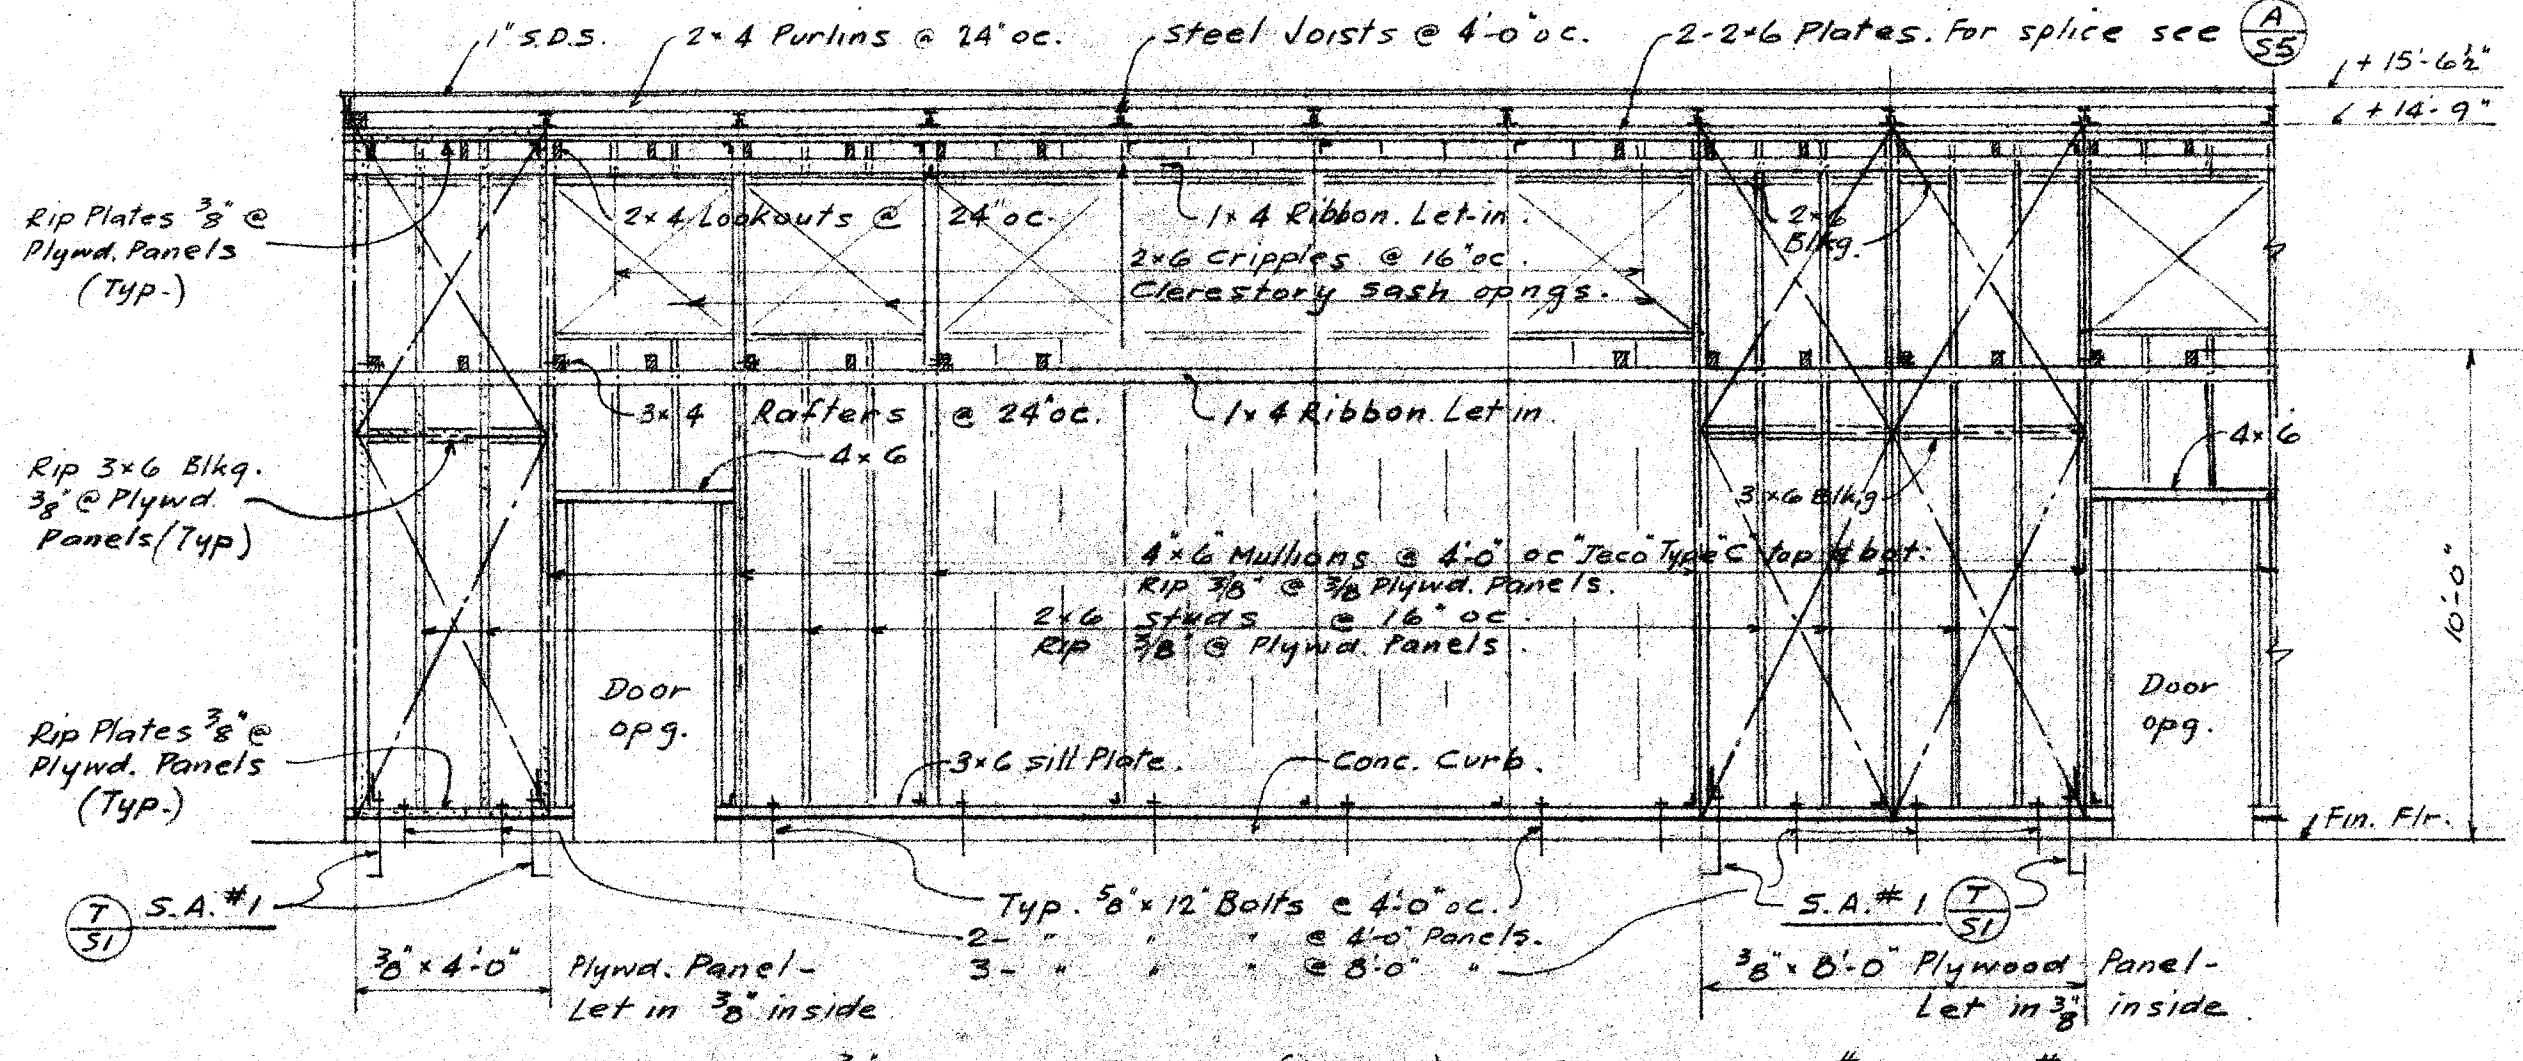 1" S.D.S.
2×4 Purlins @ 24" oc.
Steel Joists @ 4'-0" oc.
2-2×6 Plates. For splice see
A
S5
+ 15'-6½"
+ 14'-9"
Rip Plates 3/8" @
Plywd. Panels
(Typ.)
2×4 Lookouts @ 24" oc.
1×4 Ribbon. Let-in.
2×6 Cripples @ 16" oc.
Clerestory sash opngs.
2×6
Blkg.
3×4 Rafters @ 24" oc.
1×4 Ribbon. Let in.
4×6
4×6
Rip 3×6 Blkg.
3/8" @ Plywd.
Panels (Typ)
3×6 Blkg
4"×6" Mullions @ 4'-0" oc "Teco" Type "C" top & bot.
Rip 3/8" @ 3/8 Plywd. Panels.
2×6 studs @ 16" oc.
Rip 3/8" @ Plywd. Panels.
10'-0"
Door
opg.
Door
opg.
Rip Plates 3/8" @
Plywd. Panels
(Typ.)
3×6 sill Plate.
Conc. Curb.
Fin. Flr.
T
S1
S.A. #1
Typ. 5/8" × 12" Bolts @ 4'-0" oc.
2- " " " @ 4'-0" Panels.
3- " " " @ 8'-0" "
S.A. #1
T
S1
3/8" × 4'-0" Plywd. Panel-
Let in 3/8" inside
3/8" × 8'-0" Plywood Panel-
Let in 3/8" inside.